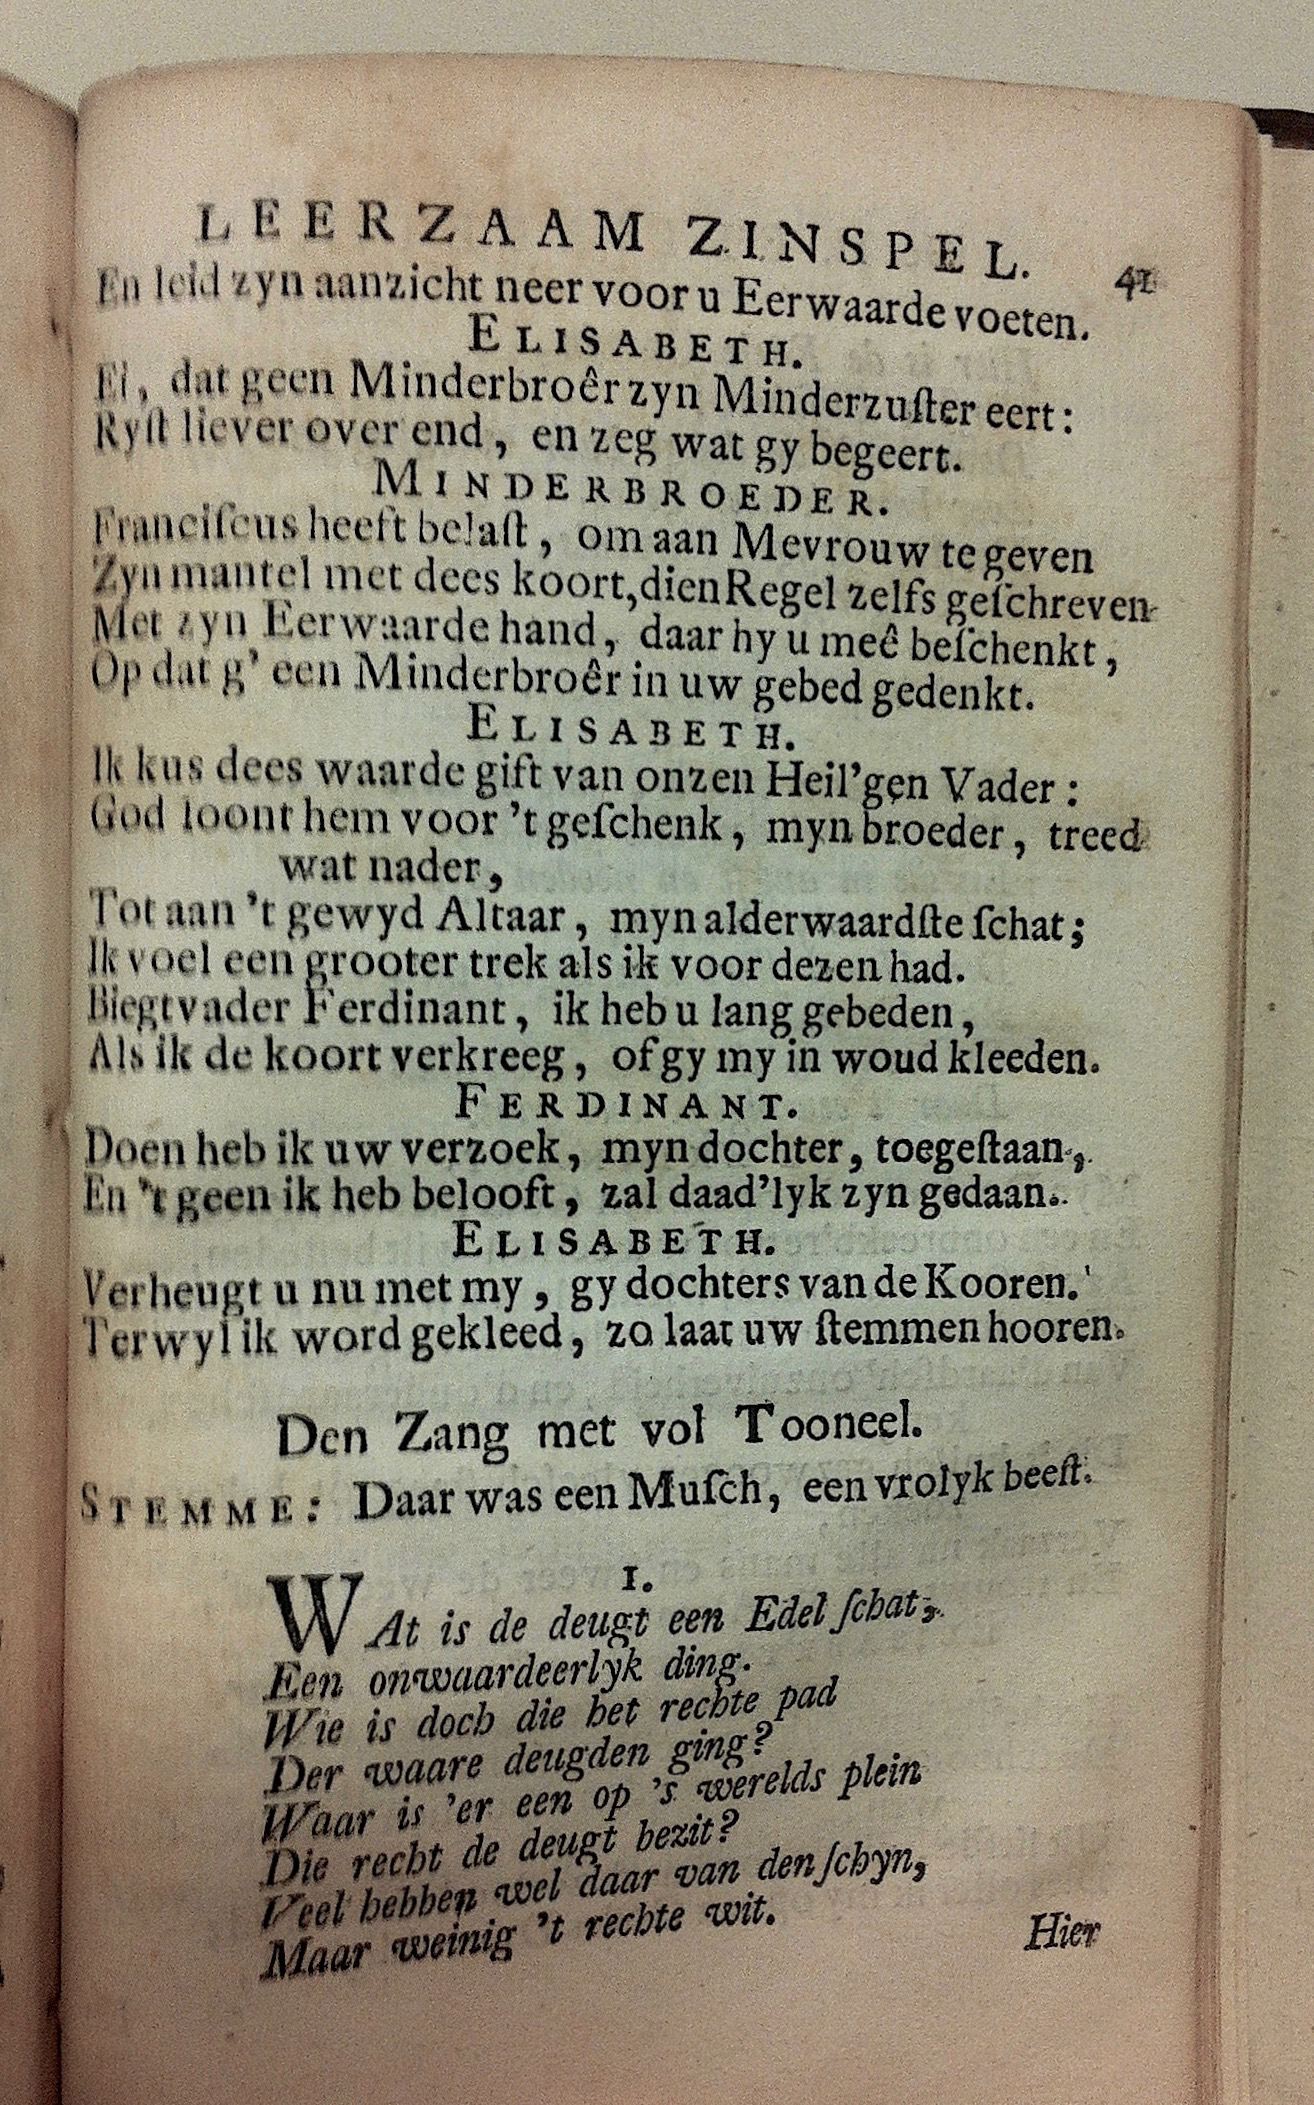 LEERZAAM ZINSPEL. 41
En leid zyn aanzicht neer voor u Eerwaarde voeten.
ELISABETH.
Ei, dat geen Minderbroêr zyn Minderzuſter eert:
Ryſt liever over end, en zeg wat gy begeert.
MINDERBROEDER.
Franciſcus heeft belaſt, om aan Mevrouw te geven
Zyn mantel met dees koort, dien Regel zelfs geſchreven
Met zyn Eerwaarde hand, daar hy u meê beſchenkt,
Op dat g' een Minderbroêr in uw gebed gedenkt.
ELISABETH.
Ik kus dees waarde gift van onzen Heil'gen Vader:
God loont hem voor 't geſchenk, myn broeder, treed
wat nader,
Tot aan 't gewyd Altaar, myn alderwaardſte ſchat;
Ik voel een grooter trek als ik voor dezen had.
Biegtvader Ferdinant, ik heb u lang gebeden,
Als ik de koort verkreeg, of gy my in woud kleeden.
FERDINANT.
Doen heb ik uw verzoek, myn dochter, toegeſtaan,
En 't geen ik heb belooft, zal daad'lyk zyn gedaan.
ELISABETH.
Verheugt u nu met my, gy dochters van de Kooren.
Terwyl ik word gekleed, zo laat uw ſtemmen hooren.
Den Zang met vol Tooneel.
STEMME: Daar was een Muſch, een vrolyk beeſt.
1.
WAt is de deugt een Edel ſchat,
Een onwaardeerlyk ding.
Wie is doch die het rechte pad
Der waare deugden ging?
Waar is 'er een op 's werelds plein
Die recht de deugt bezit?
Veel hebben wel daar van den ſchyn,
Maar weinig 't rechte wit.
Hier